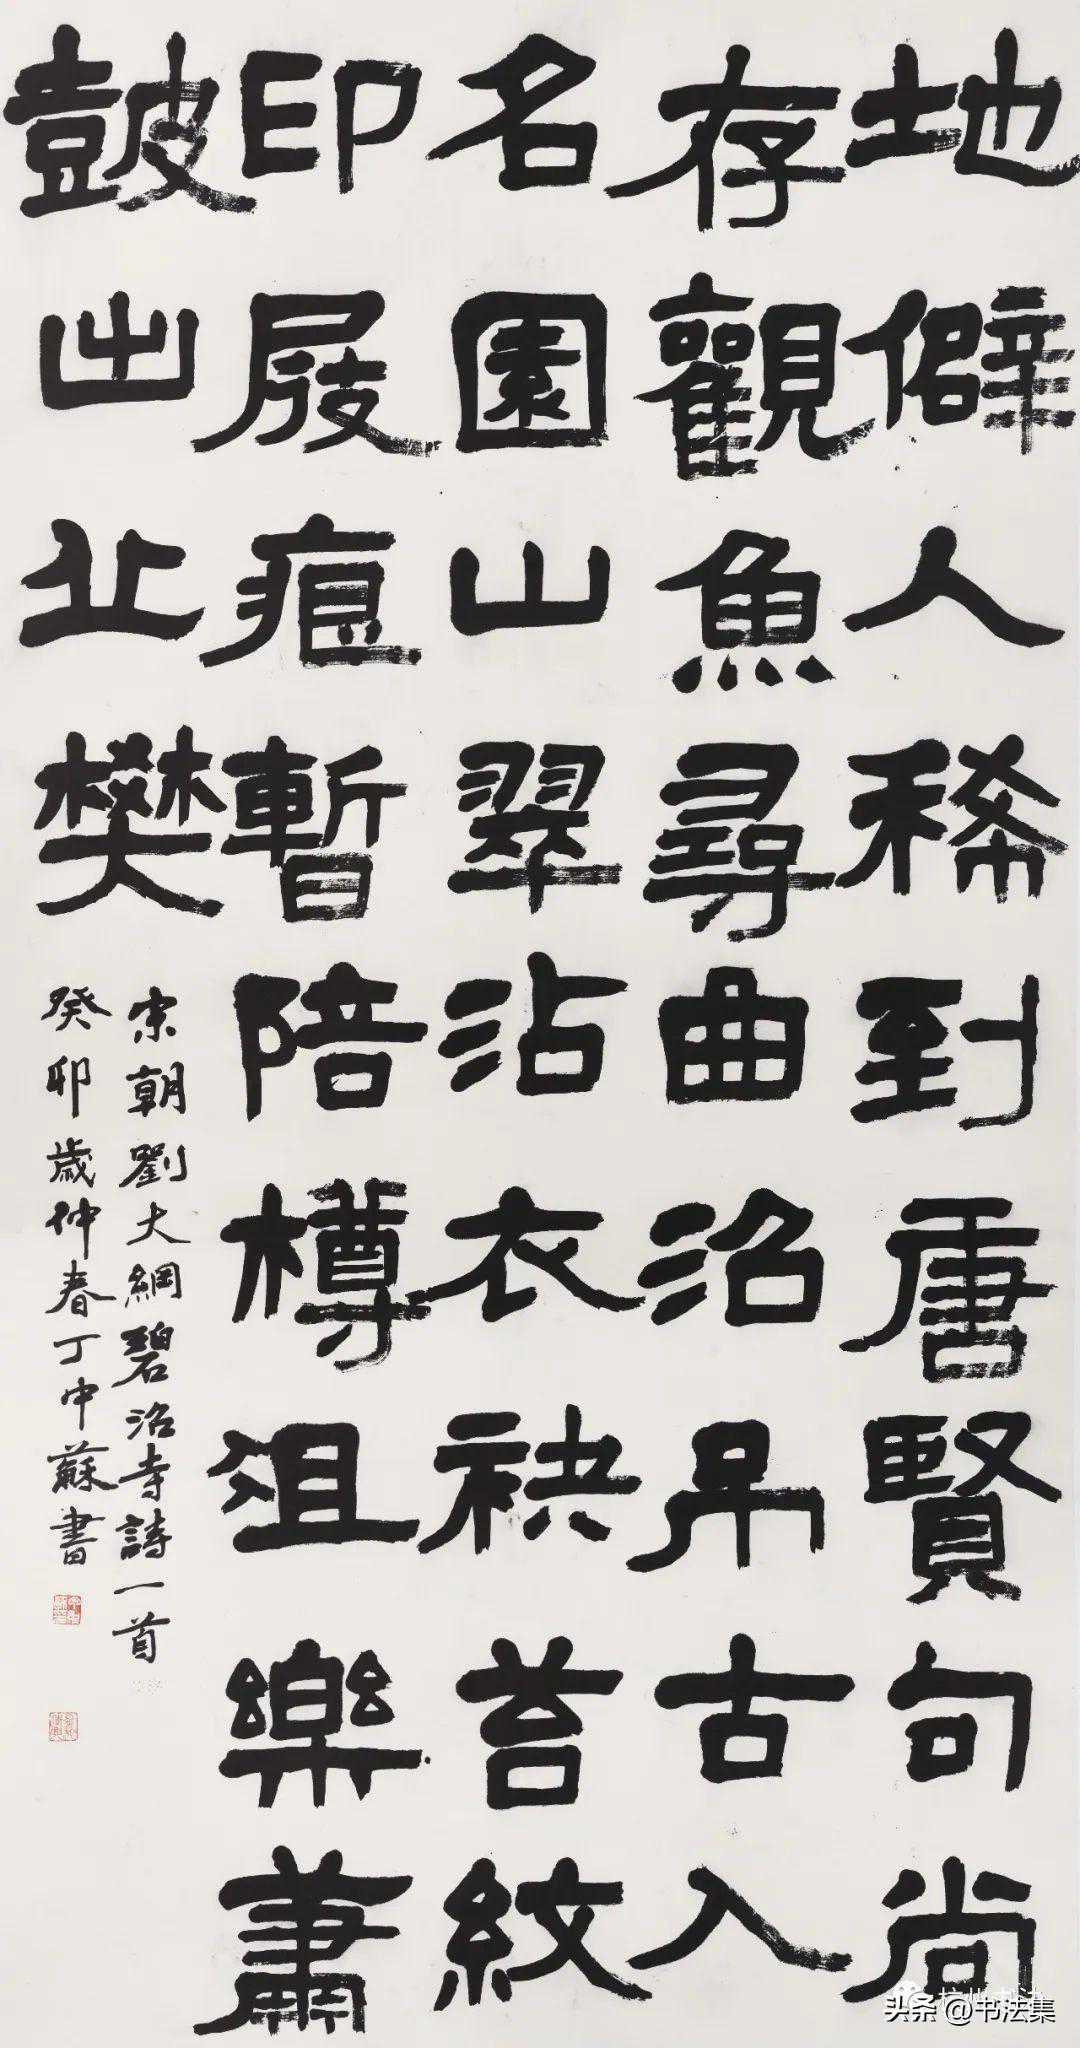 地僻人稀到唐賢句尚
存觀魚尋曲沼弔古入
名園山翠沾衣袂苔紋
印屐痕暫陪樽俎樂蕭
鼓出止樊
宋朝劉大綱碧沼寺詩一首
癸卯歲仲春丁中蘇書
头条@书法集